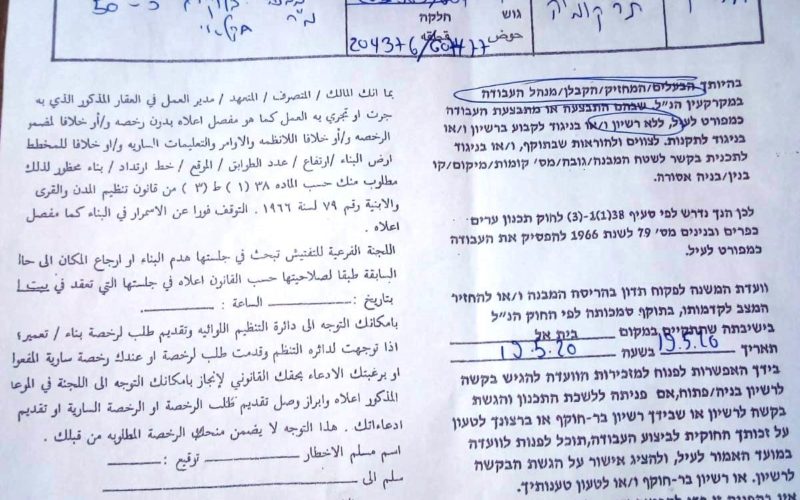 50 - כ
גוש
חלקה
חوض
قطعه
204376/604477
תרקומיה
בהיותך הבעלים/המחזיק/הקבלן/מנהל העבודה
במקרקעין הנ"ל, שבהם התבצעה או מתבצעת העבודה
כמפורט לעיל, ללא רשיון ו/או בניגוד לקבוע ברשיון ו/או
בניגוד לתקנות. לצווים ולהוראות שבתוקף, ו/או בניגוד
לתכנית בקשר לשטח המבנה/גובה/מס' קומות/מיקום/קו
בנין/בניה אסורה.
לכן הנך נדרש לפי סעיף 38(1)-(3) לחוק תכנון ערים
כפרים ובנינים מס' 79 לשנת 1966 להפסיק את העבודה
כמפורט לעיל.
וועדת המשנה לפקוח תדון בהריסה המבנה ו/או להחזיר
המצב לקדמותו, בתוקף סמכותה לפי החוק הנ"ל
בישיבתה שתתקיים במקום בית אל
תאריך 19.5.20 בשעה
בידך האפשרות לפנות למזכירות הוועדה להגיש בקשה
לרשיון בניה/פתוח, אם פניתה ללשכת התכנון והגשת
בקשה לרשיון או שבידך רשיון בר-תוקף או ברצונך לטעון
על זכותך חוקית לביצוע העבודה, תוכל לפנות לוועדה
במועד האמור לעיל, ולהציג אישור על הגשת הבקשה
לרשיון. או רשיון בר-תוקף ו/או לטעון טענותיך.
بما انك المالك / المتصرف / المتعهد / مدير العمل في العقار المذكور الذي به
جرت او تجري به العمل كما هو مفصل اعلاه بدون رخصه و/أو خلافا لمضمون
الرخصه و/أو خلافا للانظمه والاوامر والتعليمات الساريه و/او خلافا للمخطط
ارض البناء /ارتفاع / عدد الطوابق / الموقع / خط ارتداد / بناء محظور لذلك
مطلوب منك حسب الماده ٣٨ (١) ط (٣) من قانون تنظيم المدن والقرى
والابنية رقم ٧٩ لسنة ١٩٦٦ . التوقف فورا عن الاسمرار في البناء كما مفصل
اعلاه .
اللجنة الفرعية للتفتيش تبحث في جلستها هدم البناء او ارجاع المكان الى حالته
السابقة طبقا لصلاحيتها حسب القانون اعلاه في جلستها التي تعقد في بيت
بتاريخ : الساعة :
بامكانك التوجه الى دائرة التنظيم اللوائيه وتقديم طلب لرخصة بناء / تعمير
اذا توجهت لدائره التنظم وقدمت طلب لرخصة او عندك رخصة سارية المفعول
او برغبتك الادعاء بحقك القانوني لإنجاز بامكانك التوجه الى اللجنة في الموعد
المذكور اعلاه وابراز وصل تقديم طلب الرخصة او الرخصة السارية او تقديم
ادعاءاتك . هذا التوجه لا يضمن منحك الرخصة المطلوبه من قبلك .
اسم مسلم الاخطار توقيع :
سلم الى